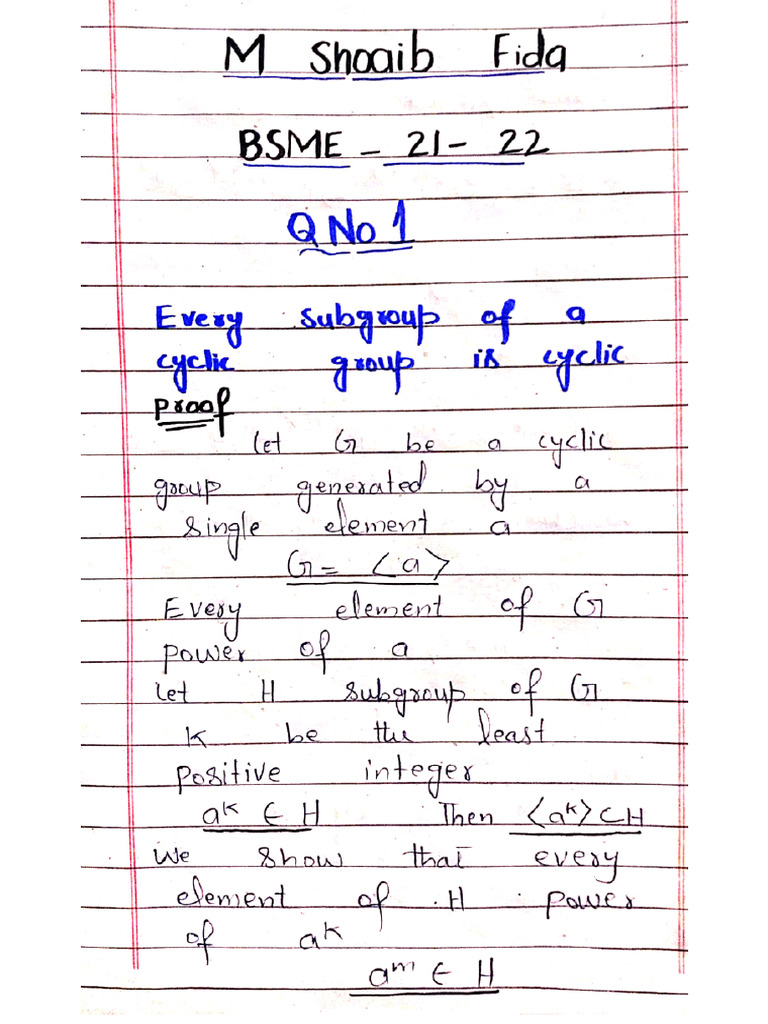 M Shoaib Fida
BSME - 21 - 22
Q No 1
Every subgroup of a
cyclic group is cyclic
proof
Let G be a cyclic
group generated by a
single element a
G = ⟨a⟩
Every element of G
power of a
Let H subgroup of G
K be the least
positive integer
aᴷ ∈ H Then ⟨aᴷ⟩ ⊂ H
We show that every
element of H power
of aᴷ
aᵐ ∈ H